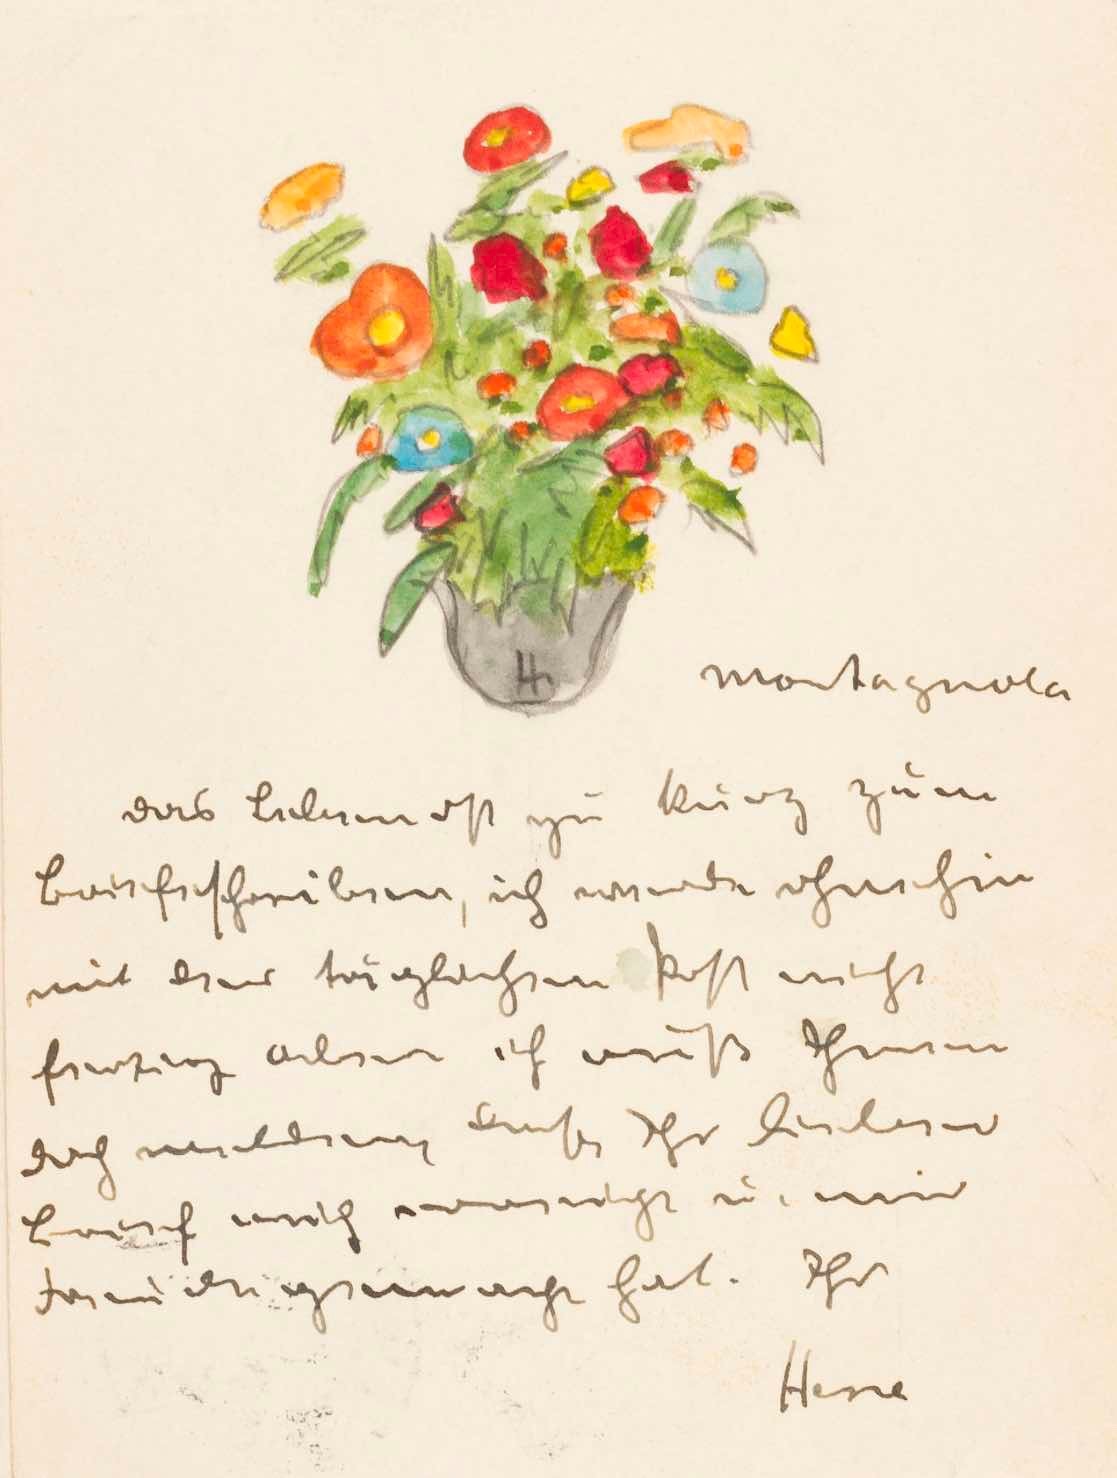 H
Montagnola
das Leben ist zu kurz zum
Briefeschreiben, ich werde ohnehin
mit der täglichen Post nicht
fertig aber ich muß Ihnen
doch melden, daß Ihr lieber
Brief mich erreicht u. mir
Freude gemacht hat. Ihr
Hesse